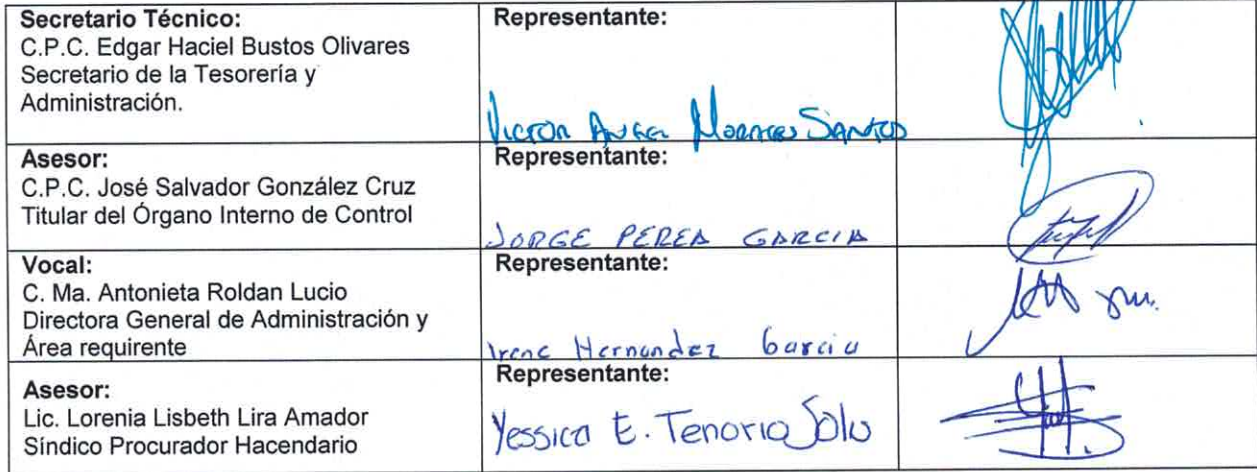 Secretario Técnico:
C.P.C. Edgar Haciel Bustos Olivares
Secretario de la Tesorería y
Administración.
Representante:
Victor Angel Morales Santos
Asesor:
C.P.C. José Salvador González Cruz
Titular del Órgano Interno de Control
Representante:
JORGE PEREA GARCIA
Vocal:
C. Ma. Antonieta Roldan Lucio
Directora General de Administración y
Área requirente
Representante:
Irene Hernandez Garcia
Asesor:
Lic. Lorenia Lisbeth Lira Amador
Síndico Procurador Hacendario
Representante:
Yessica E. Tenorio Solu